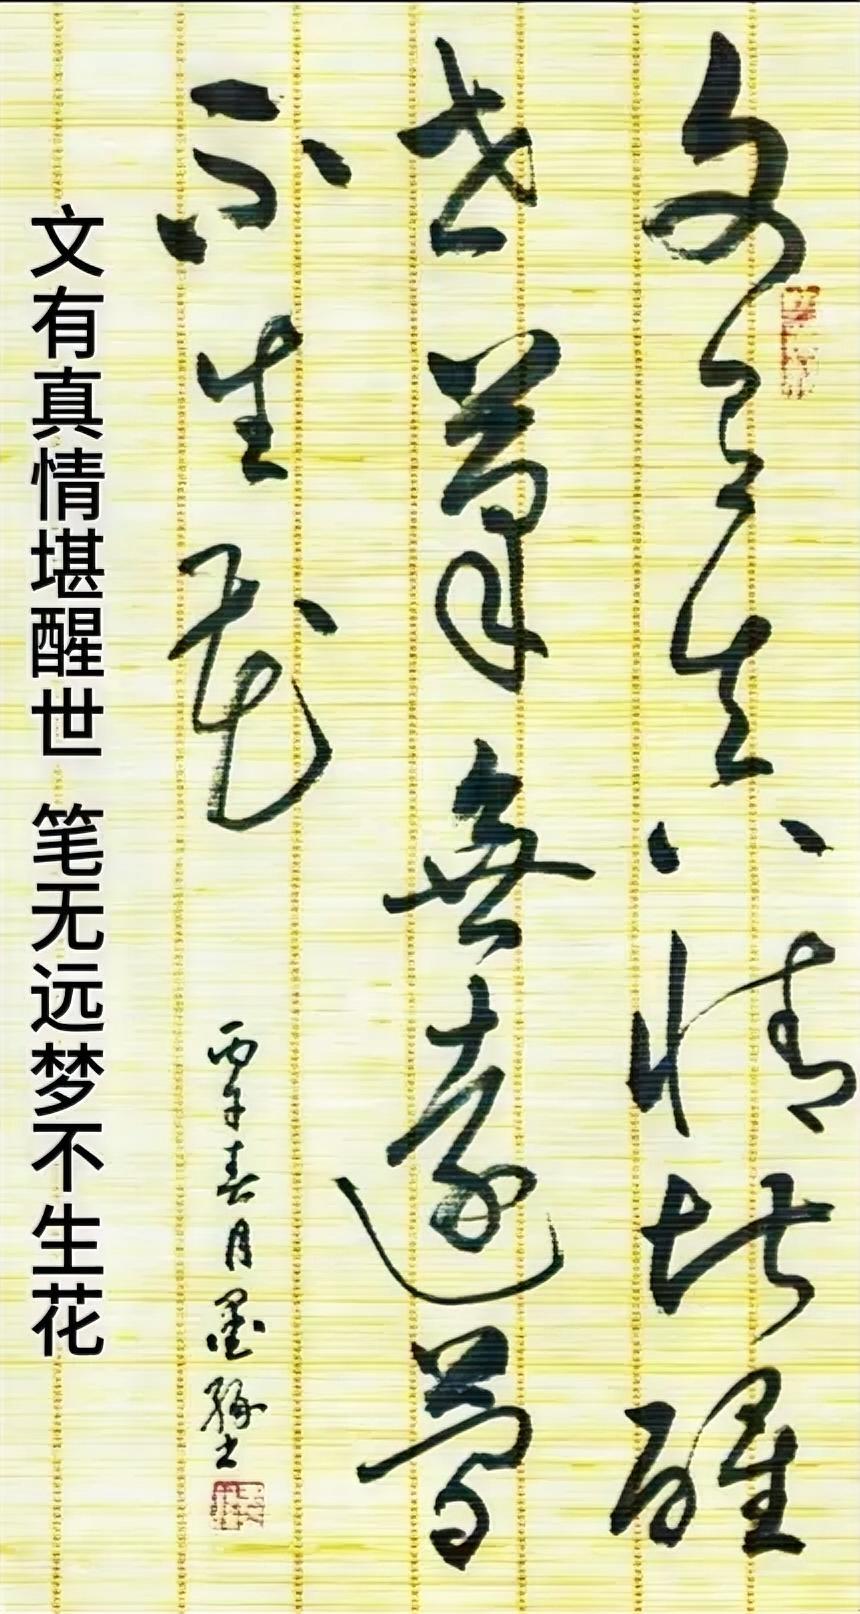 文有真情堪醒
世筆無遠夢
不生花
丙午春月墨
文有真情堪醒世 笔无远梦不生花